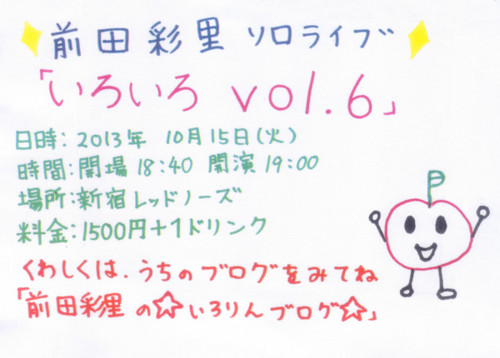 前田彩里 ソロライブ
「いろいろ vol.6」
日時: 2013年 10月15日(火)
時間:開場18:40 開演19:00
場所:新宿レッドノーズ
料金:1500円+1ドリンク
くわしくは、うちのブログをみてね
「前田彩里の☆いろりんブログ☆」